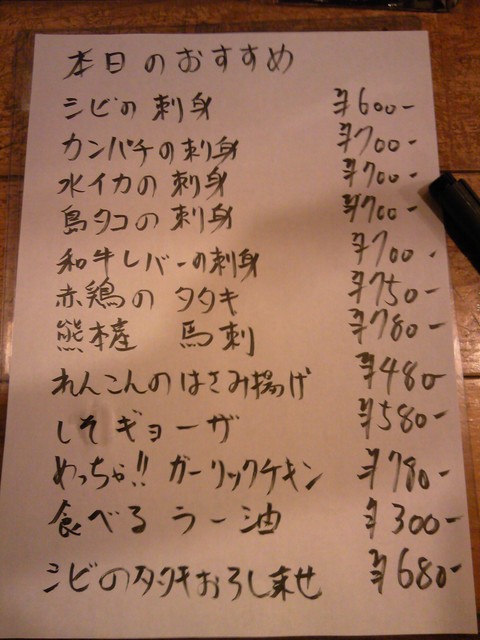 本日のおすすめ
シビの刺身 ¥600-
カンパチの刺身 ¥700-
水イカの刺身 ¥700-
島タコの刺身 ¥700-
和牛レバーの刺身 ¥700-
赤鶏のタタキ ¥750-
熊本産 馬刺 ¥780-
れんこんのはさみ揚げ ¥480-
しそギョーザ ¥580-
めっちゃ!! ガーリックチキン ¥780-
食べるラー油 ¥300-
シビのタタキおろし乗せ ¥680-